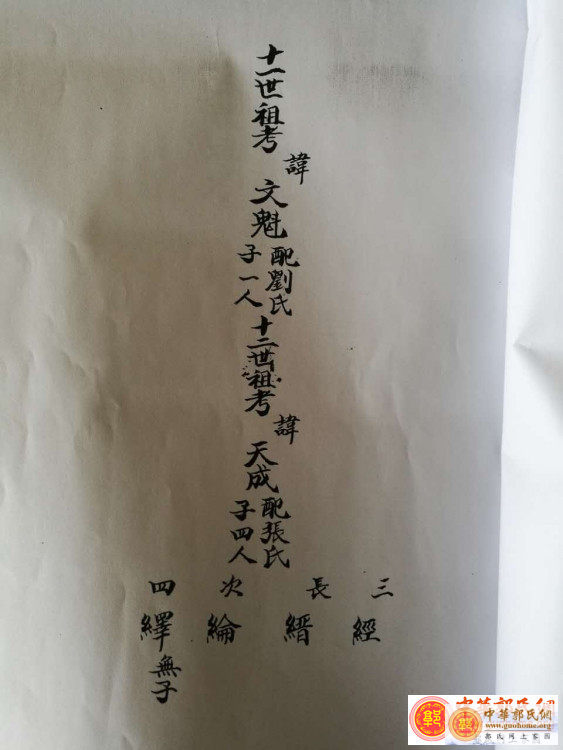 十一世祖考
諱
文魁
配劉氏
子一人
十二世祖考
諱
天成
配張氏
子四人
三 經
長 縉
次 綸
四 繹 無子
中華郭氏網
中華郭氏網
www.guohome.org
郭氏网上家园